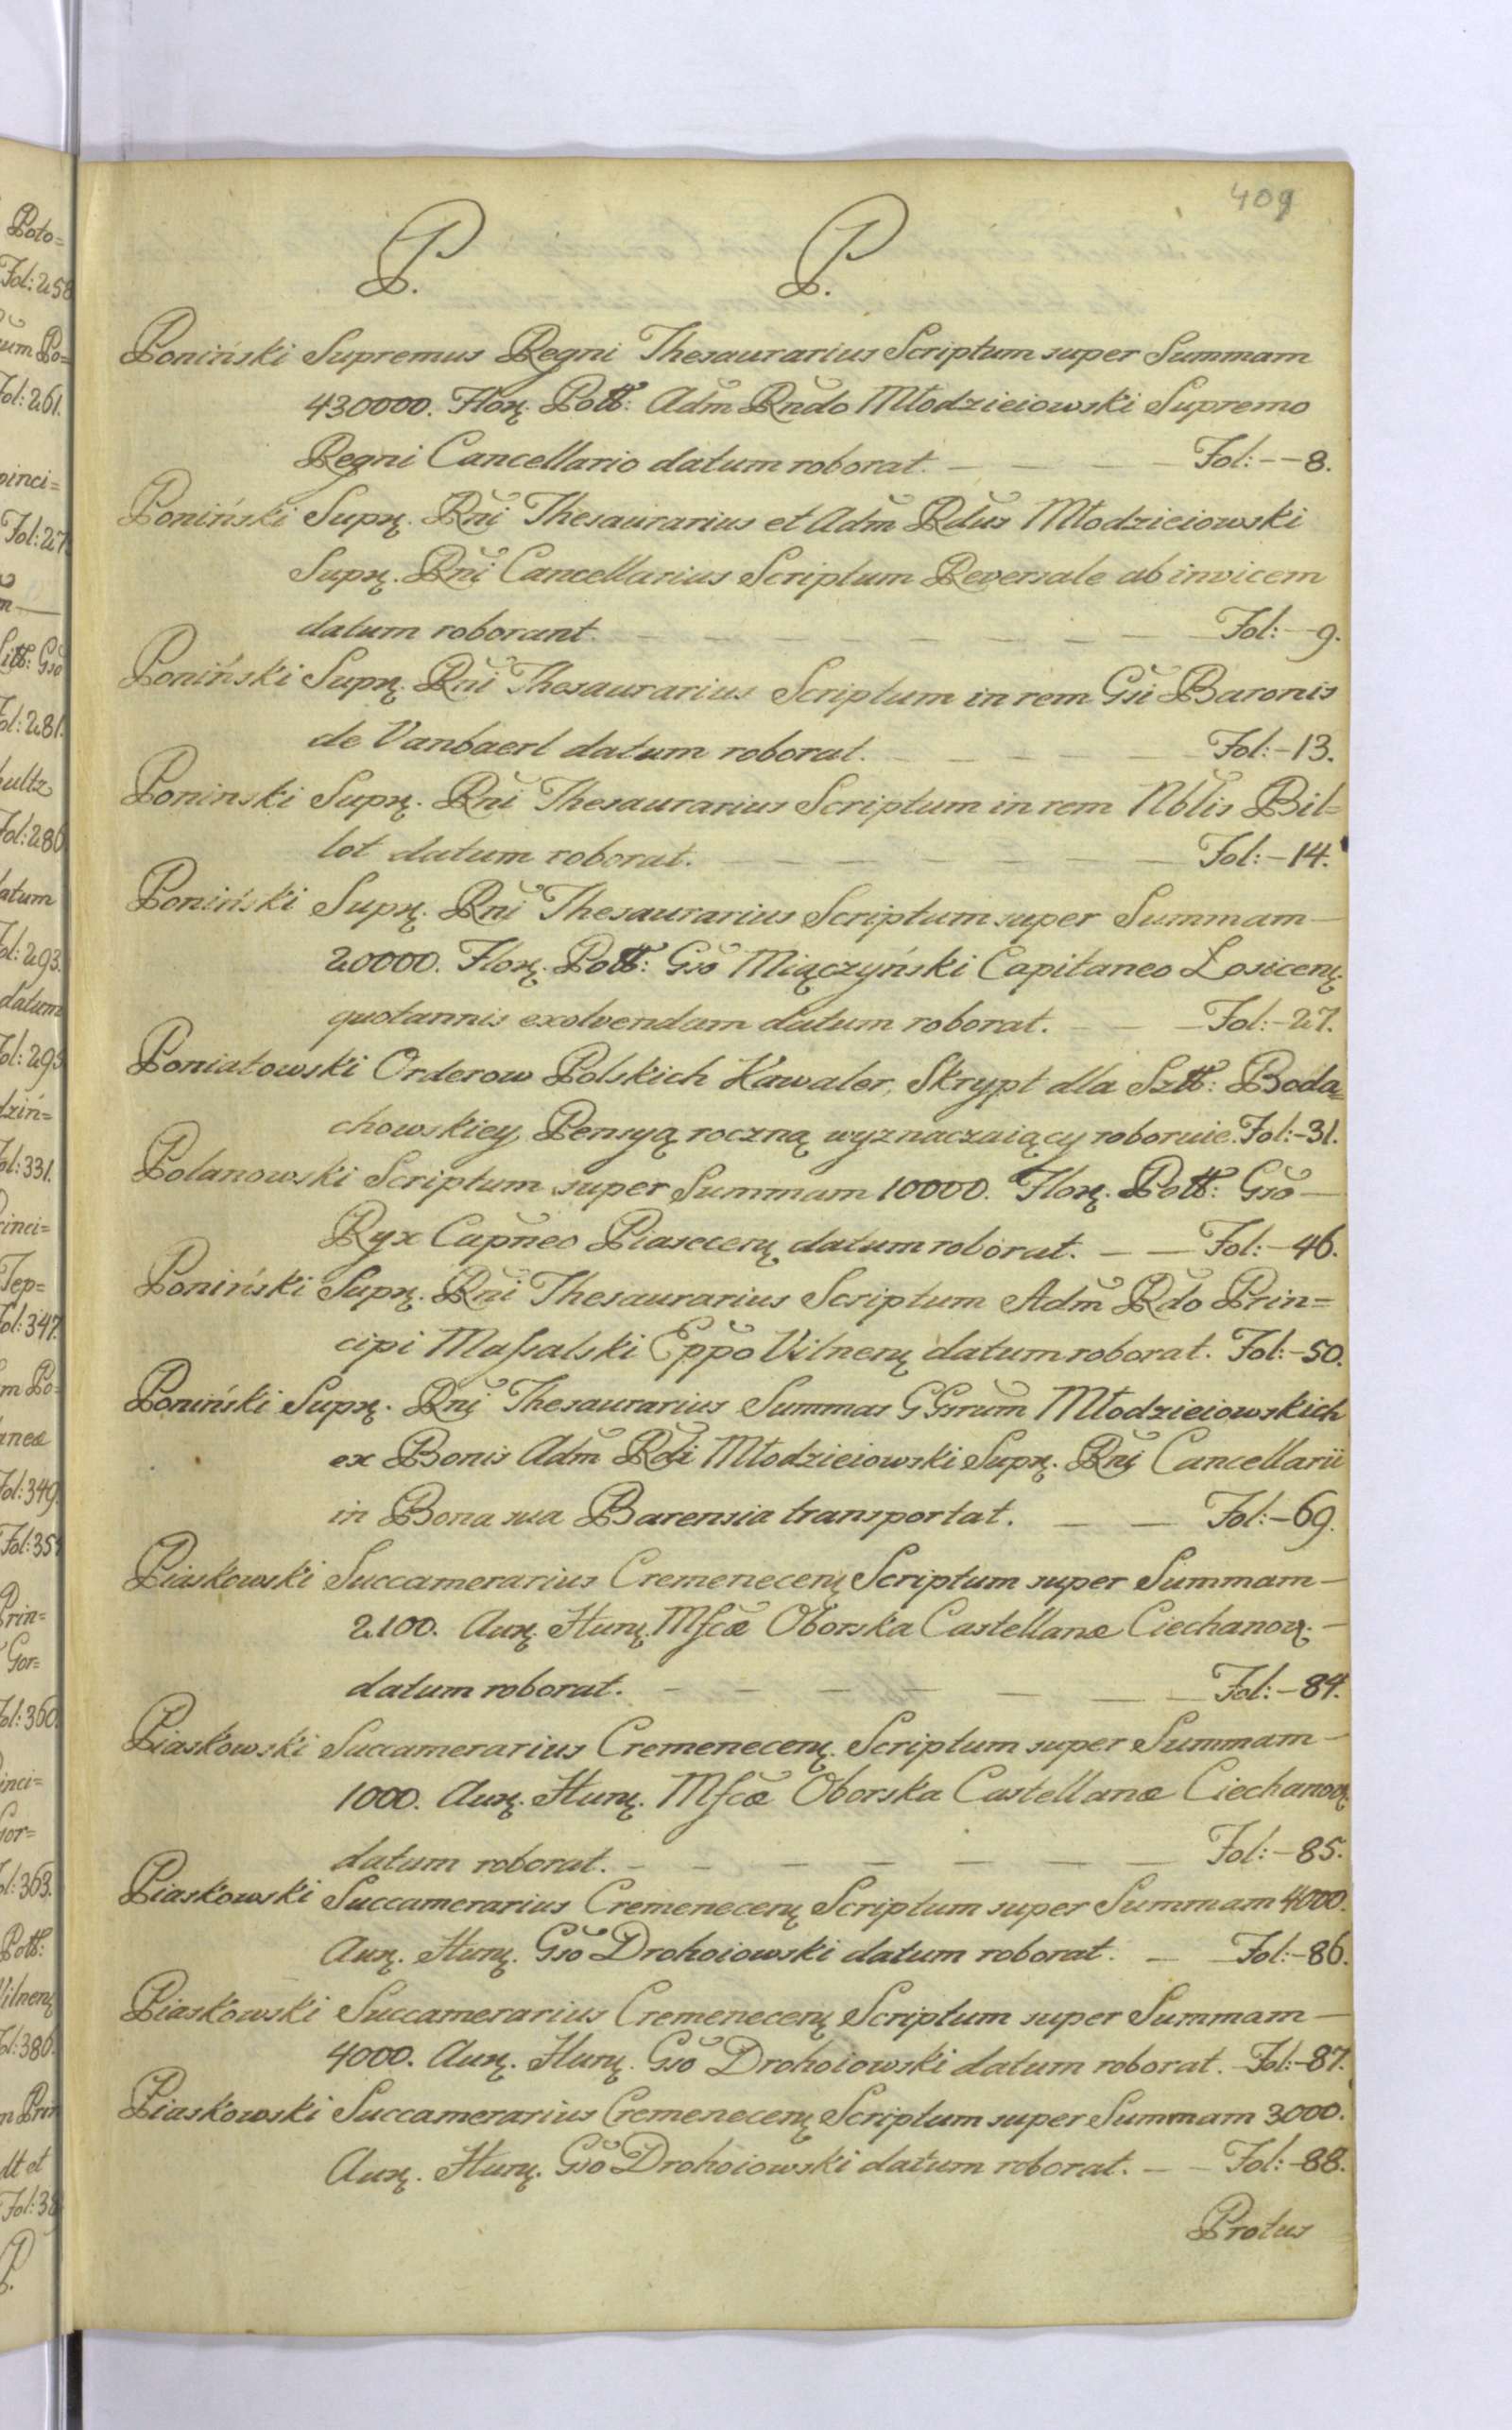 409
P. P.
Poniński Supremus Regni Thesaurarius Scriptum super Summam
430000. Florͬ. Poll: Adm̃ Rndo Młodzieiowski Supremo
Regni Cancellario datum roborat. — — — — Fol: - - 8.
Poniński Supr. Rñi Thesaurarius et Adm̃ Rdus Młodzieiowski
Supr. Rñi Cancellarius Scriptum Reversale ab invicem
datum roborant. — — — — — — — Fol: - 9.
Poniński Supr. Rñi Thesaurarius Scriptum in rem Gsi Baronis
de Vanbaerl datum roborat. — — — — Fol: - 13.
Poninski Supr. Rñi Thesaurarius Scriptum in rem Nblis Bil=
lot datum roborat. — — — — — — Fol: - 14.
Poniński Supr. Rñi Thesaurarius Scriptum super Summam —
20000. Flor. Poll: Gso Miączyński Capitaneo Losicen.
quotannis exolvendam datum roborat. — — Fol: - 27.
Poniatowski Orderow Polskich Kawaler, Skrypt dla Sztt: Boda=
chowskiey, Pensyą roczną wyznaczaiący roboruie. Fol: - 31.
Polanowski Scriptum super Summam 10000. Flor. Poll: Gso —
Ryx Capneo Piasecen. datum roborat. — — Fol: - 46.
Poniński Supr. Rñi Thesaurarius Scriptum Adm̃ Rdo Prin=
cipi Maſsalski Eppo Vilnen. datum roborat. Fol: - 50.
Poniński Supr. Rñi Thesaurarius Summas GGsrum Młodzieiowskich
ex Bonis Adm̃ Rdi Młodzieiowski Supr. Rñi Cancellarii
in Bona sua Barensia transportat. — — Fol: - 69.
Piaskowski Succamerarius Cremenecen. Scriptum super Summam —
2100. Aur. Hun. Mfcæ Oborska Castellanæ Ciechanov. —
datum roborat. — — — — — — — Fol: - 84.
Piaskowski Succamerarius Cremenecen. Scriptum super Summam —
1000. Aur. Hun. Mfcæ Oborska Castellanæ Ciechanov.
datum roborat. — — — — — — — Fol: - 85.
Piaskowski Succamerarius Cremenecen. Scriptum super Summam 4000.
Aur. Hun. Gso Drohoiowski datum roborat. — Fol: - 86.
Piaskowski Succamerarius Cremenecen. Scriptum super Summam —
4000. Aur. Hun. Gso Drohoiowski datum roborat. Fol: - 87.
Piaskowski Succamerarius Cremenecen. Scriptum super Summam 3000.
Aur. Hun. Gso Drohoiowski datum roborat. — — Fol: - 88.
Protus